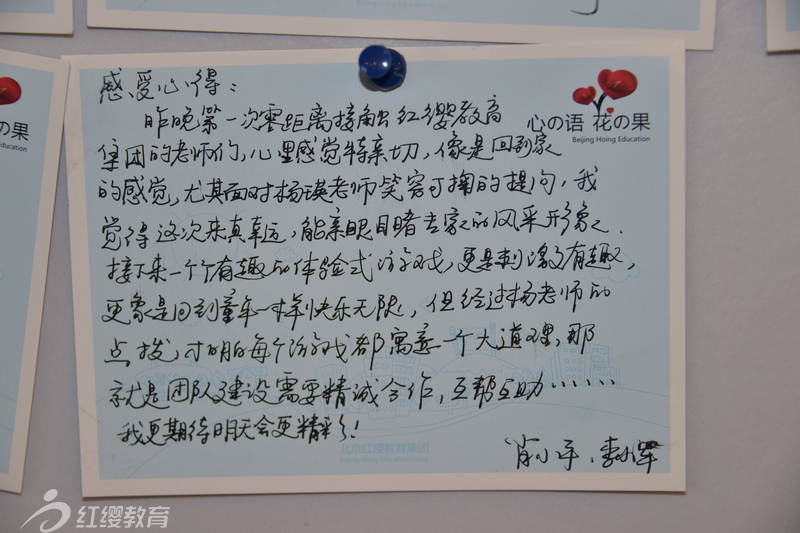 感受心得：
昨晚第一次零距离接触红缨教育
集团的老师们，心里感觉特亲切，像是回到家
的感觉，尤其面对杨瑛老师笑容可掬的提问，我
觉得这次来真幸运，能亲眼目睹专家的风采形象之
接下来一个个有趣的体验式游戏，更是刺激又有趣，
更象是回到童年一样快乐无限，但经过杨老师的
点拨，才明白每个游戏都寓意一个大道理，那
就是团队建设需要精诚合作，互帮互助……
我更期待明天会更精彩！
心の语 花の果
Beijing Hoing Education
花の果
Education
北京红缨教育集团
Beijing Hoing Education Group
红缨教育